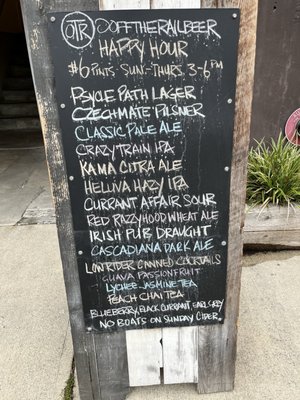 OTR
@OFFTHERAILBEER
HAPPY HOUR
$6 PINTS SUN-THURS 3-6PM
PSYCLE PATH LAGER
CZECHMATE PILSNER
CLASSIC PALE ALE
CRAZY TRAIN IPA
KAMA CITRA ALE
HELLUVA HAZY IPA
CURRANT AFFAIR SOUR
RED RAZZYHOOD WHEAT ALE
IRISH PUB DRAUGHT
CASCADIANA DARK ALE
LOWRIDER CANNED COCKTAILS
GUAVA PASSIONFRUIT
LYCHEE JASMINE TEA
PEACH CHAI TEA
BLUEBERRY, BLACK CURRANT, EARL GREY
NO BOATS ON SUNDAY CIDER